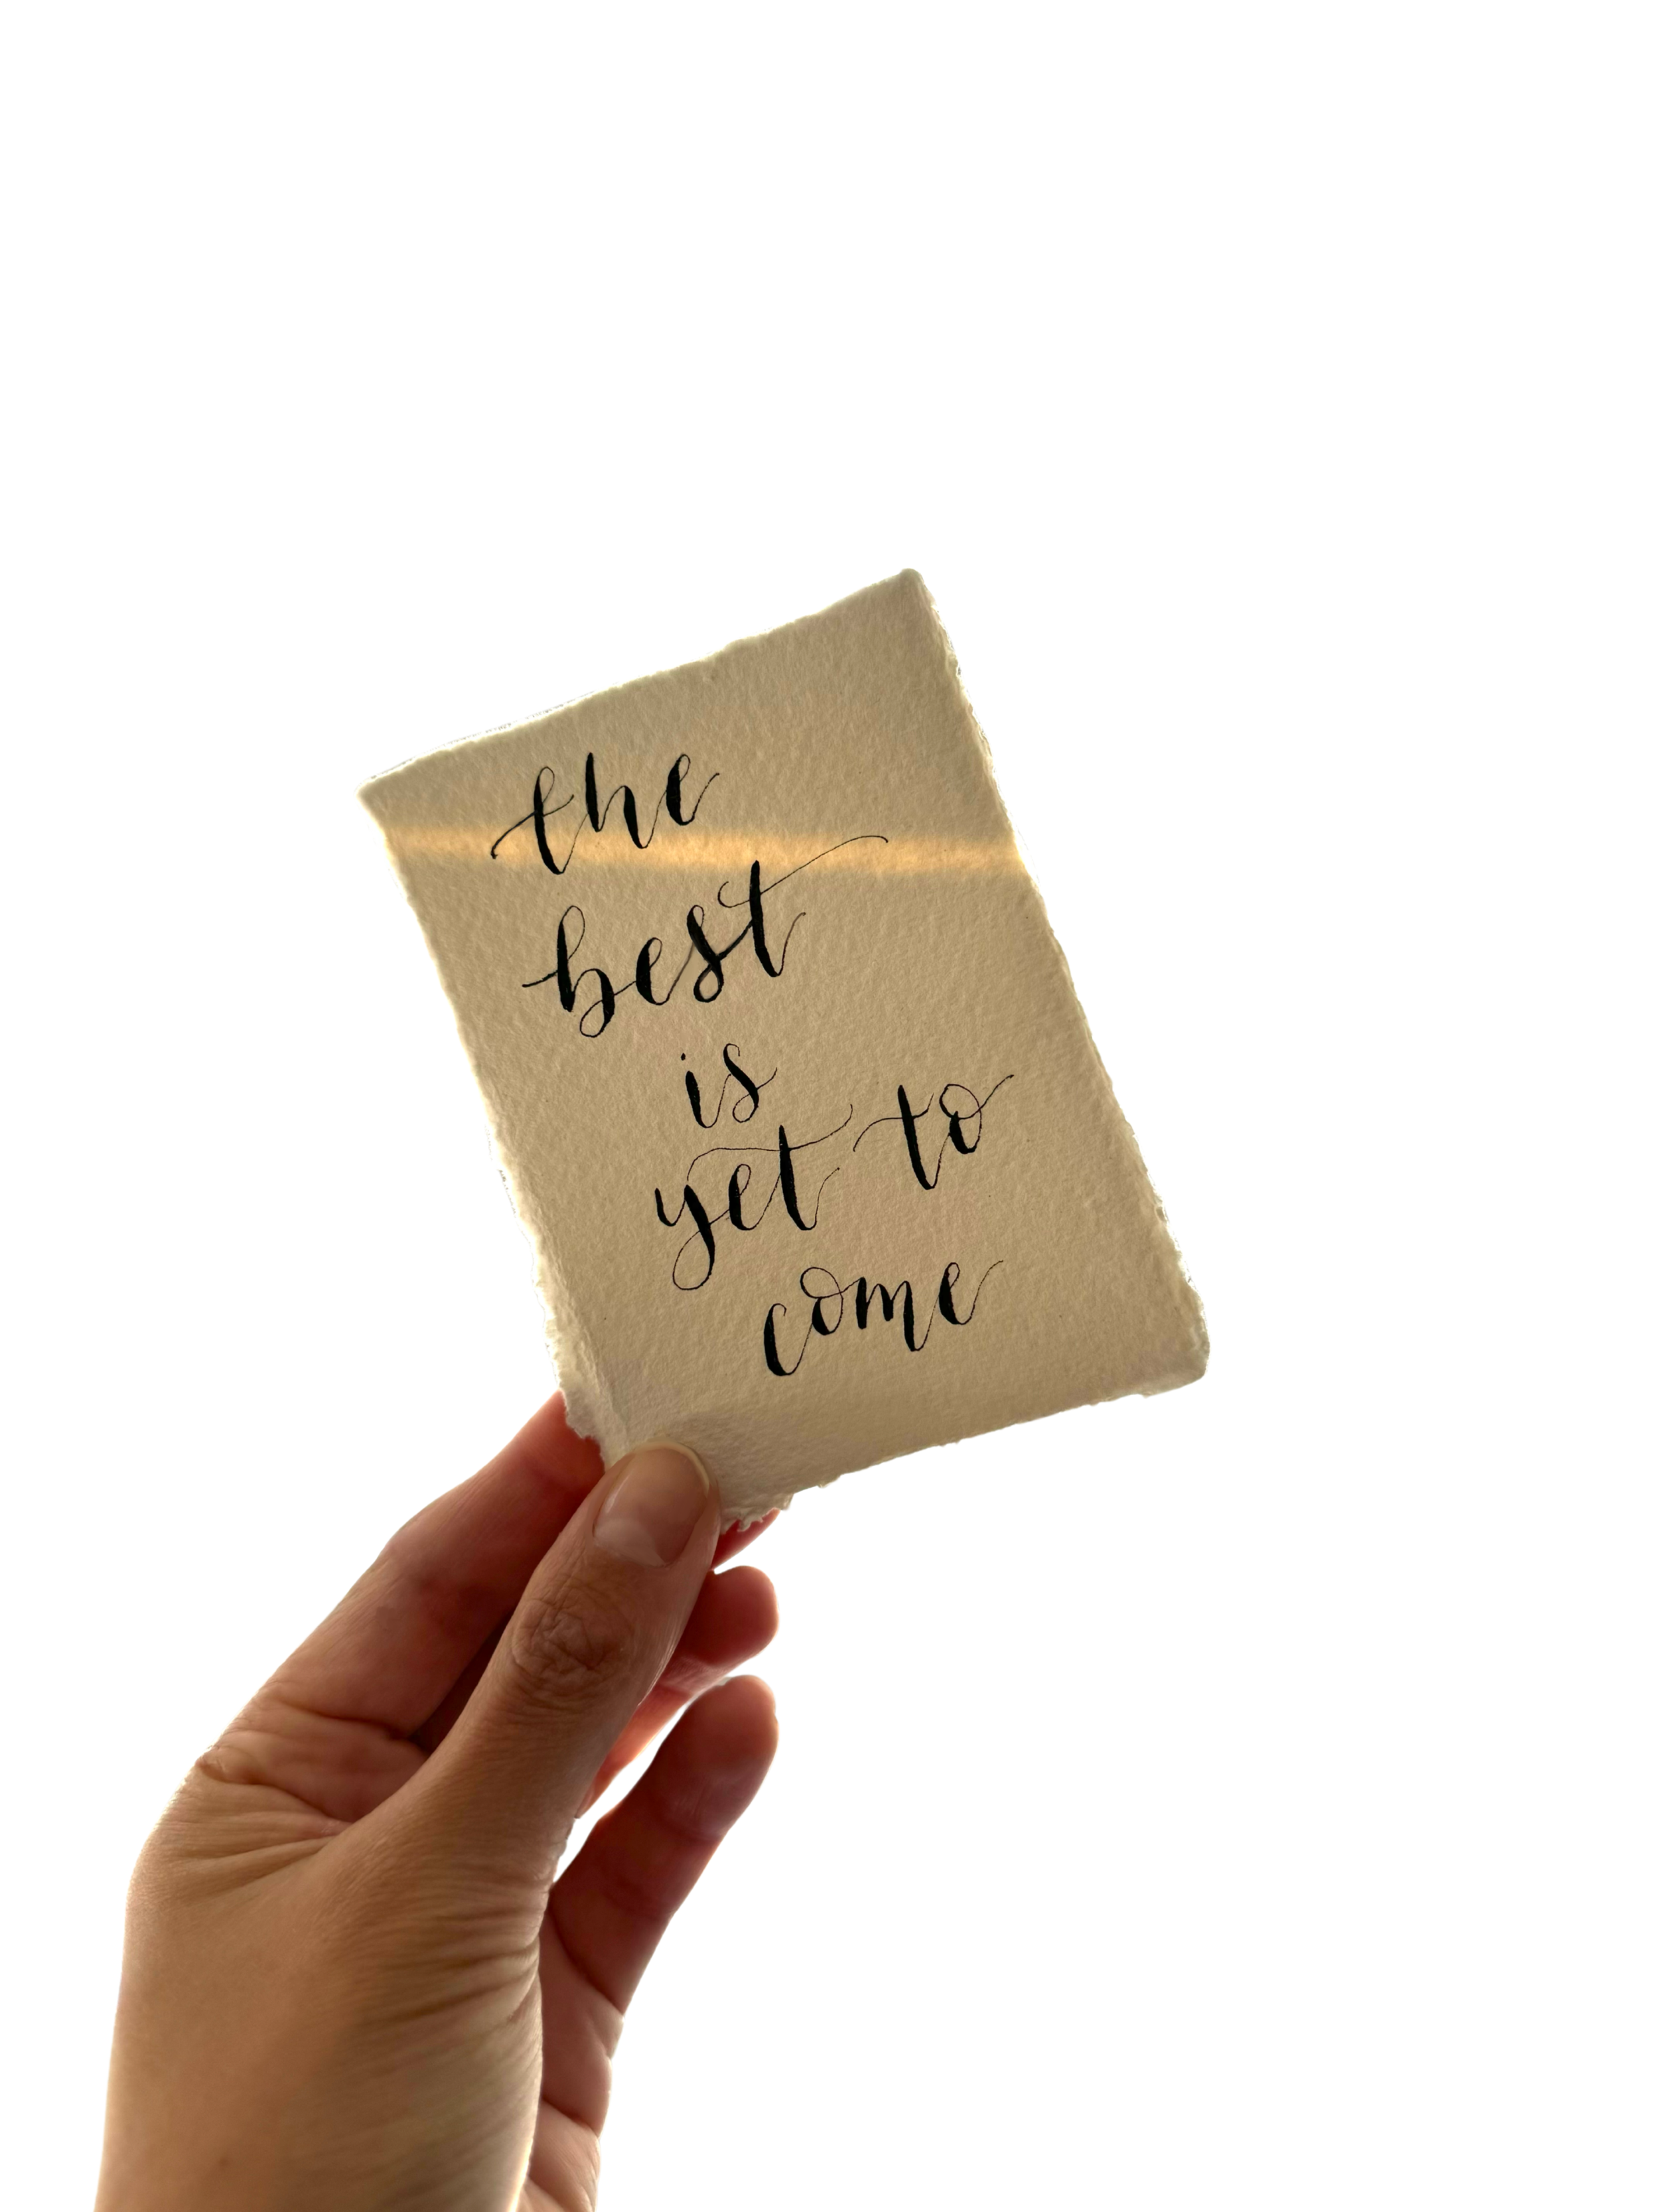 the
best
is
yet to
come